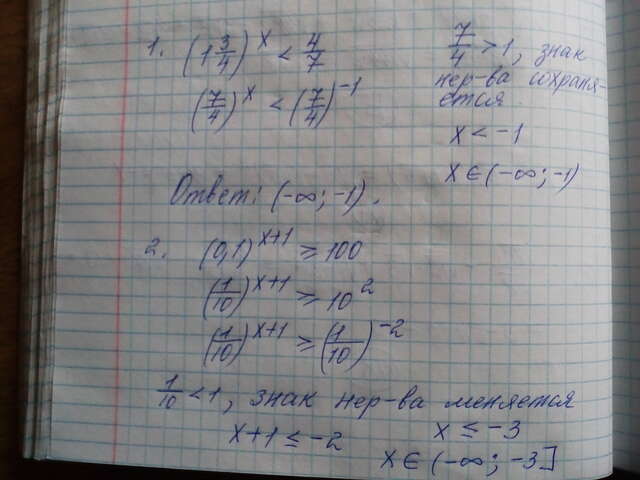 1. (1 3/4)^x < 4/7
(7/4)^x < (7/4)^-1
7/4 > 1, знак
нер-ва сохраня-
ется.
x < -1
x ∈ (-∞; -1)
Ответ: (-∞; -1).
2. (0,1)^x+1 ≥ 100
(1/10)^x+1 ≥ 10^2
(1/10)^x+1 ≥ (1/10)^-2
1/10 < 1, знак нер-ва меняется
x+1 ≤ -2
x ≤ -3
x ∈ (-∞; -3]